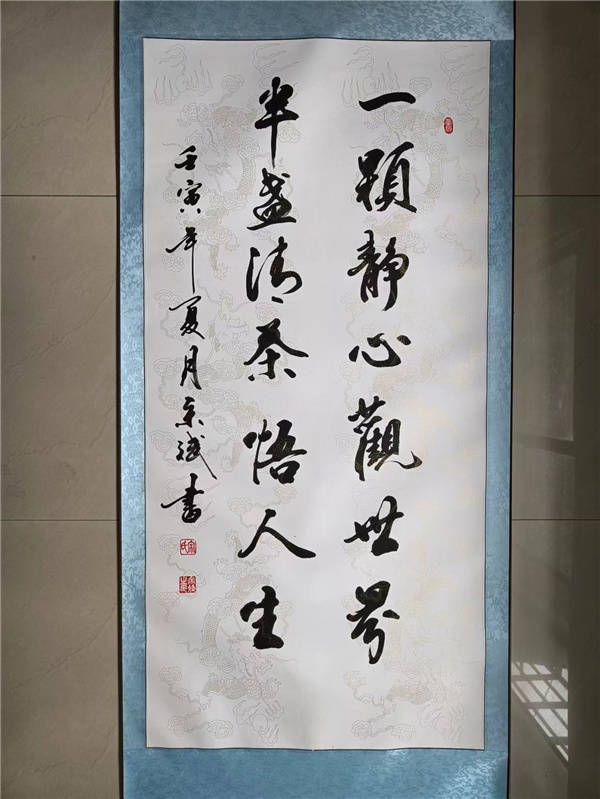 一顆静心觀世界
半盏清茶悟人生
壬寅年夏月京斌書